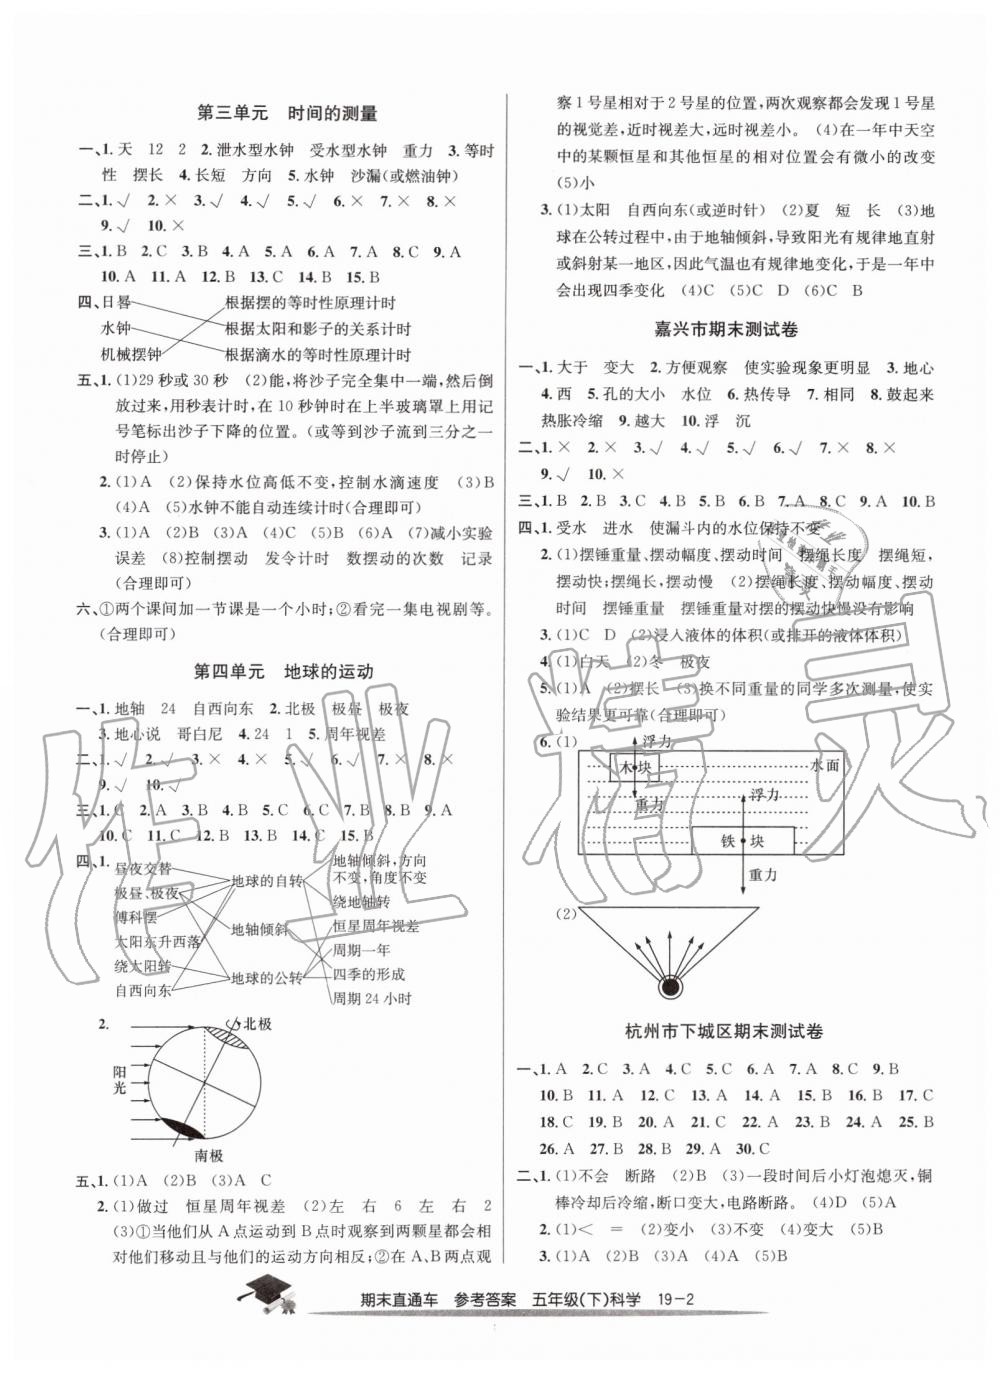 第三单元 时间的测量
一、1. 天 12 2 2. 泄水型水钟 受水型水钟 重力 3. 等时
性 摆长 4. 长短 方向 5. 水钟 沙漏(或燃油钟)
二、1. √ 2. × 3. √ 4. √ 5. √ 6. × 7. × 8. ×
9. √ 10. ×
三、1. B 2. C 3. B 4. A 5. A 6. B 7. C 8. C 9. A
10. A 11. A 12. B 13. C 14. B 15. B
四、日晷 根据摆的等时性原理计时
水钟 根据太阳和影子的关系计时
机械摆钟 根据滴水的等时性原理计时
五、1. (1)29 秒或 30 秒 (2)能,将沙子完全集中一端,然后倒
放过来,用秒表计时,在 10 秒钟时在上半玻璃罩上用记
号笔标出沙子下降的位置。(或等到沙子流到三分之一
时停止)
2. (1)A (2)保持水位高低不变,控制水滴速度 (3)B
(4)A (5)水钟不能自动连续计时(合理即可)
3. (1)A (2)B (3)A (4)C (5)B (6)A (7)减小实验
误差 (8)控制摆动 发令计时 数摆动的次数 记录
(合理即可)
六、①两个课间加一节课是一个小时;②看完一集电视剧等。
(合理即可)
第四单元 地球的运动
一、1. 地轴 24 自西向东 2. 北极 极昼 极夜
3. 地心说 哥白尼 4. 24 1 5. 周年视差
二、1. √ 2. √ 3. × 4. × 5. × 6. √ 7. × 8. ×
9. √ 10. √
三、1. C 2. A 3. B 4. C 5. C 6. C 7. B 8. B 9. A
10. C 11. C 12. B 13. C 14. B 15. B
四、1.
昼夜交替 地球的自转 地轴倾斜,方向
不变,角度不变
极昼、极夜 绕地轴转
傅科摆 地轴倾斜 恒星周年视差
太阳东升西落 周期一年
绕太阳转 地球的公转 四季的形成
自西向东 周期 24 小时
2.
北极
阳光
南极
五、1. (1)A (2)B (3)A C
2. (1)做过 恒星周年视差 (2)左 右 6 左 右 2
(3)①当他们从 A 点运动到 B 点时观察到两颗星都会相
对他们移动且与他们的运动方向相反;②在 A、B 两点观
察 1 号星相对于 2 号星的位置,两次观察都会发现 1 号星
的视觉差,近时视差大,远时视差小。 (4)在一年中天空
中的某颗恒星和其他恒星的相对位置会有微小的改变
(5)小
3. (1)太阳 自西向东(或逆时针) (2)夏 短 长 (3)地
球在公转过程中,由于地轴倾斜,导致阳光有规律地直射
或斜射某一地区,因此气温也有规律地变化,于是一年中
会出现四季变化 (4)C (5)C D (6)C B
嘉兴市期末测试卷
一、1. 大于 变大 2. 方便观察 使实验现象更明显 3. 地心
4. 西 5. 孔的大小 水位 6. 热传导 7. 相同 8. 鼓起来
热胀冷缩 9. 越大 10. 浮 沉
二、1. × 2. × 3. √ 4. √ 5. √ 6. √ 7. × 8. ×
9. √ 10. ×
三、1. B 2. B 3. C 4. C 5. B 6. B 7. A 8. C 9. A 10. B
四、1. 受水 进水 使漏斗内的水位保持不变
2. (1)摆锤重量、摆动幅度、摆动时间 摆绳长度 摆绳短,
摆动快;摆绳长,摆动慢 (2)摆绳长度、摆动幅度、摆动
时间 摆锤重量 摆锤重量对摆的摆动快慢没有影响
3. (1)C D (2)浸入液体的体积(或排开的液体体积)
4. (1)白天 (2)冬 极夜
5. (1)A (2)摆长 (3)换不同重量的同学多次测量,使实
验结果更可靠(合理即可)
6. (1)
浮力
木块 水面
重力 浮力
铁块
重力
(2)
杭州市下城区期末测试卷
一、1. A 2. C 3. A 4. C 5. A 6. A 7. A 8. C 9. B
10. B 11. A 12. C 13. A 14. A 15. B 16. B 17. C
18. C 19. B 20. A 21. C 22. A 23. A 24. A 25. B
26. A 27. B 28. B 29. A 30. C
二、1. (1)不会 断路 (2)B (3)一段时间后小灯泡熄灭,铜
棒冷却后冷缩,断口变大,电路断路。 (4)D (5)A
2. (1)< = (2)变小 (3)不变 (4)变大 (5)B
3. (1)A (2)B (3)A (4)A (5)B
期末直通车 参考答案 五年级(下)科学 19-2
作业精灵